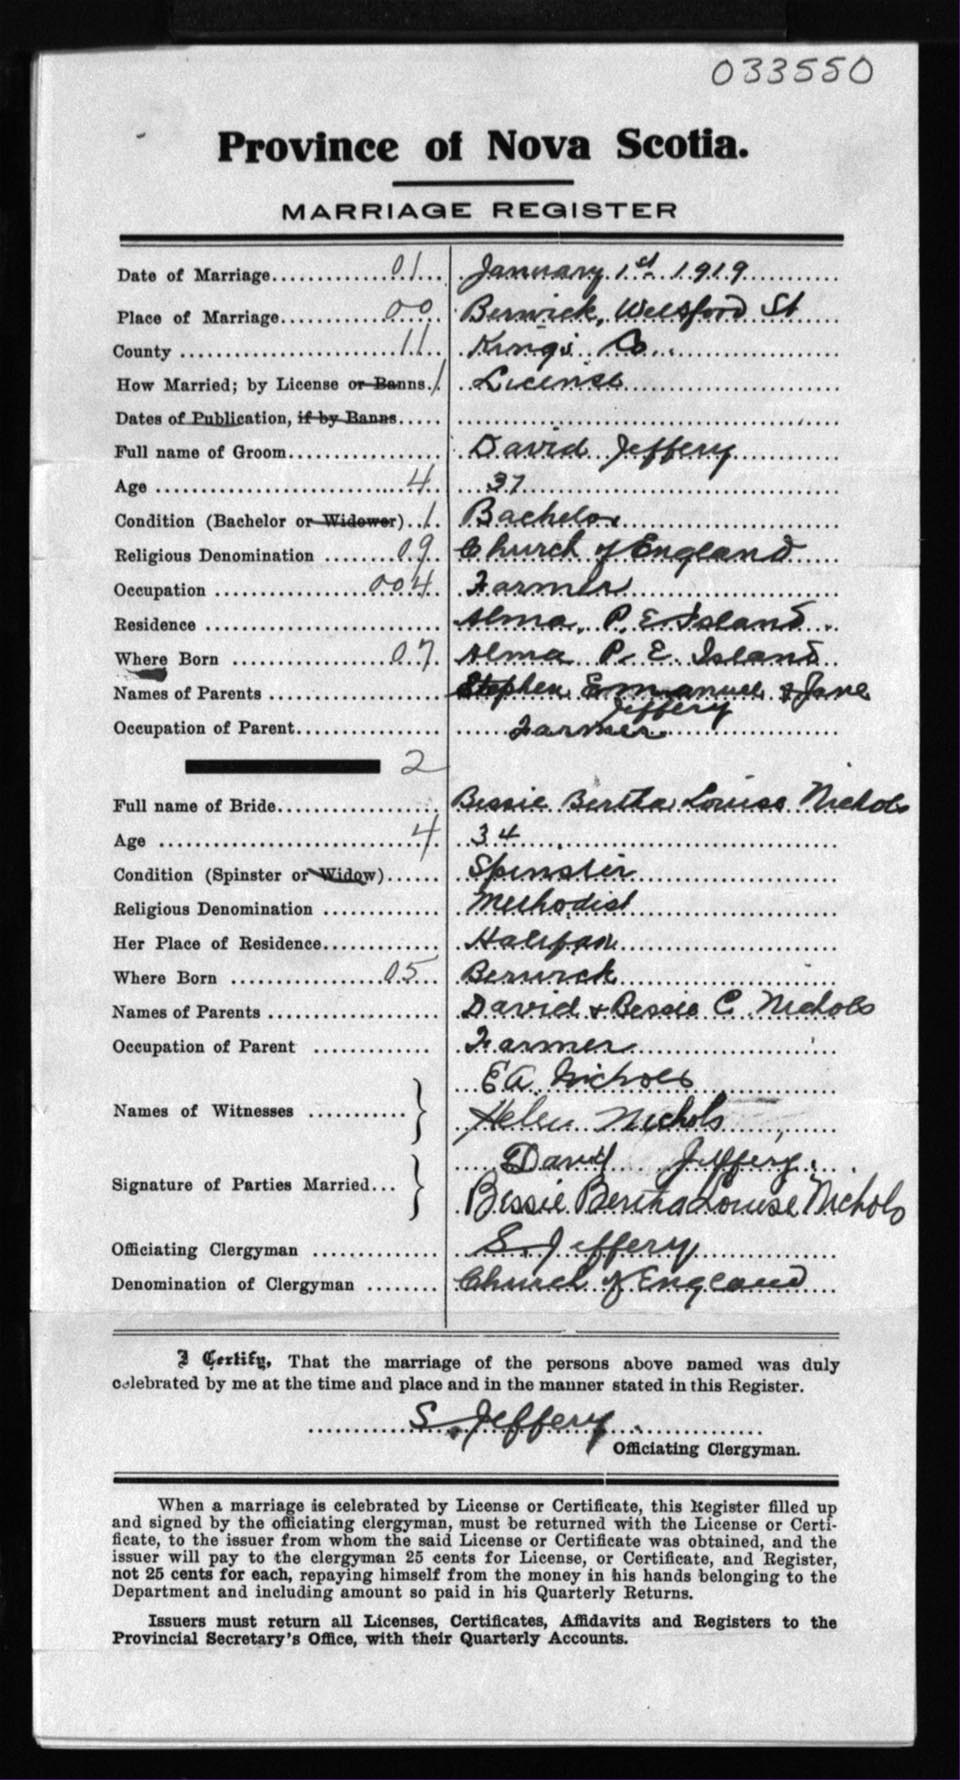 033550
Province of Nova Scotia.
MARRIAGE REGISTER
Date of Marriage 01 January 1st 1919
Place of Marriage 00 Berwick, Welsford St
County 11 King's Co.
How Married; by License or Banns. 1 License
Dates of Publication, if by Banns
Full name of Groom David Jeffery
Age 4 37
Condition (Bachelor or Widower) 1 Bachelor
Religious Denomination 09 Church of England
Occupation 004 Farmer
Residence Alma, P. E. Island
Where Born 07 Alma P. E. Island
Names of Parents Stephen Emanuel & Jane
Jeffery
Occupation of Parent Farmer
2
Full name of Bride Bessie Bertha Louise Nichols
Age 4 34
Condition (Spinster or Widow) Spinster
Religious Denomination Methodist
Her Place of Residence Halifax
Where Born 05 Berwick
Names of Parents David & Bessie C Nichols
Occupation of Parent Farmer
E A Nichols
Names of Witnesses
Helen Nichols
David Jeffery.
Signature of Parties Married
Bessie Bertha Louise Nichols
Officiating Clergyman S. Jeffery
Denomination of Clergyman Church of England
I Certify, That the marriage of the persons above named was duly
celebrated by me at the time and place and in the manner stated in this Register.
S. Jeffery
Officiating Clergyman.
When a marriage is celebrated by License or Certificate, this Register filled up
and signed by the officiating clergyman, must be returned with the License or Certi-
ficate, to the issuer from whom the said License or Certificate was obtained, and the
issuer will pay to the clergyman 25 cents for License, or Certificate, and Register,
not 25 cents for each, repaying himself from the money in his hands belonging to the
Department and including amount so paid in his Quarterly Returns.
Issuers must return all Licenses, Certificates, Affidavits and Registers to the
Provincial Secretary's Office, with their Quarterly Accounts.